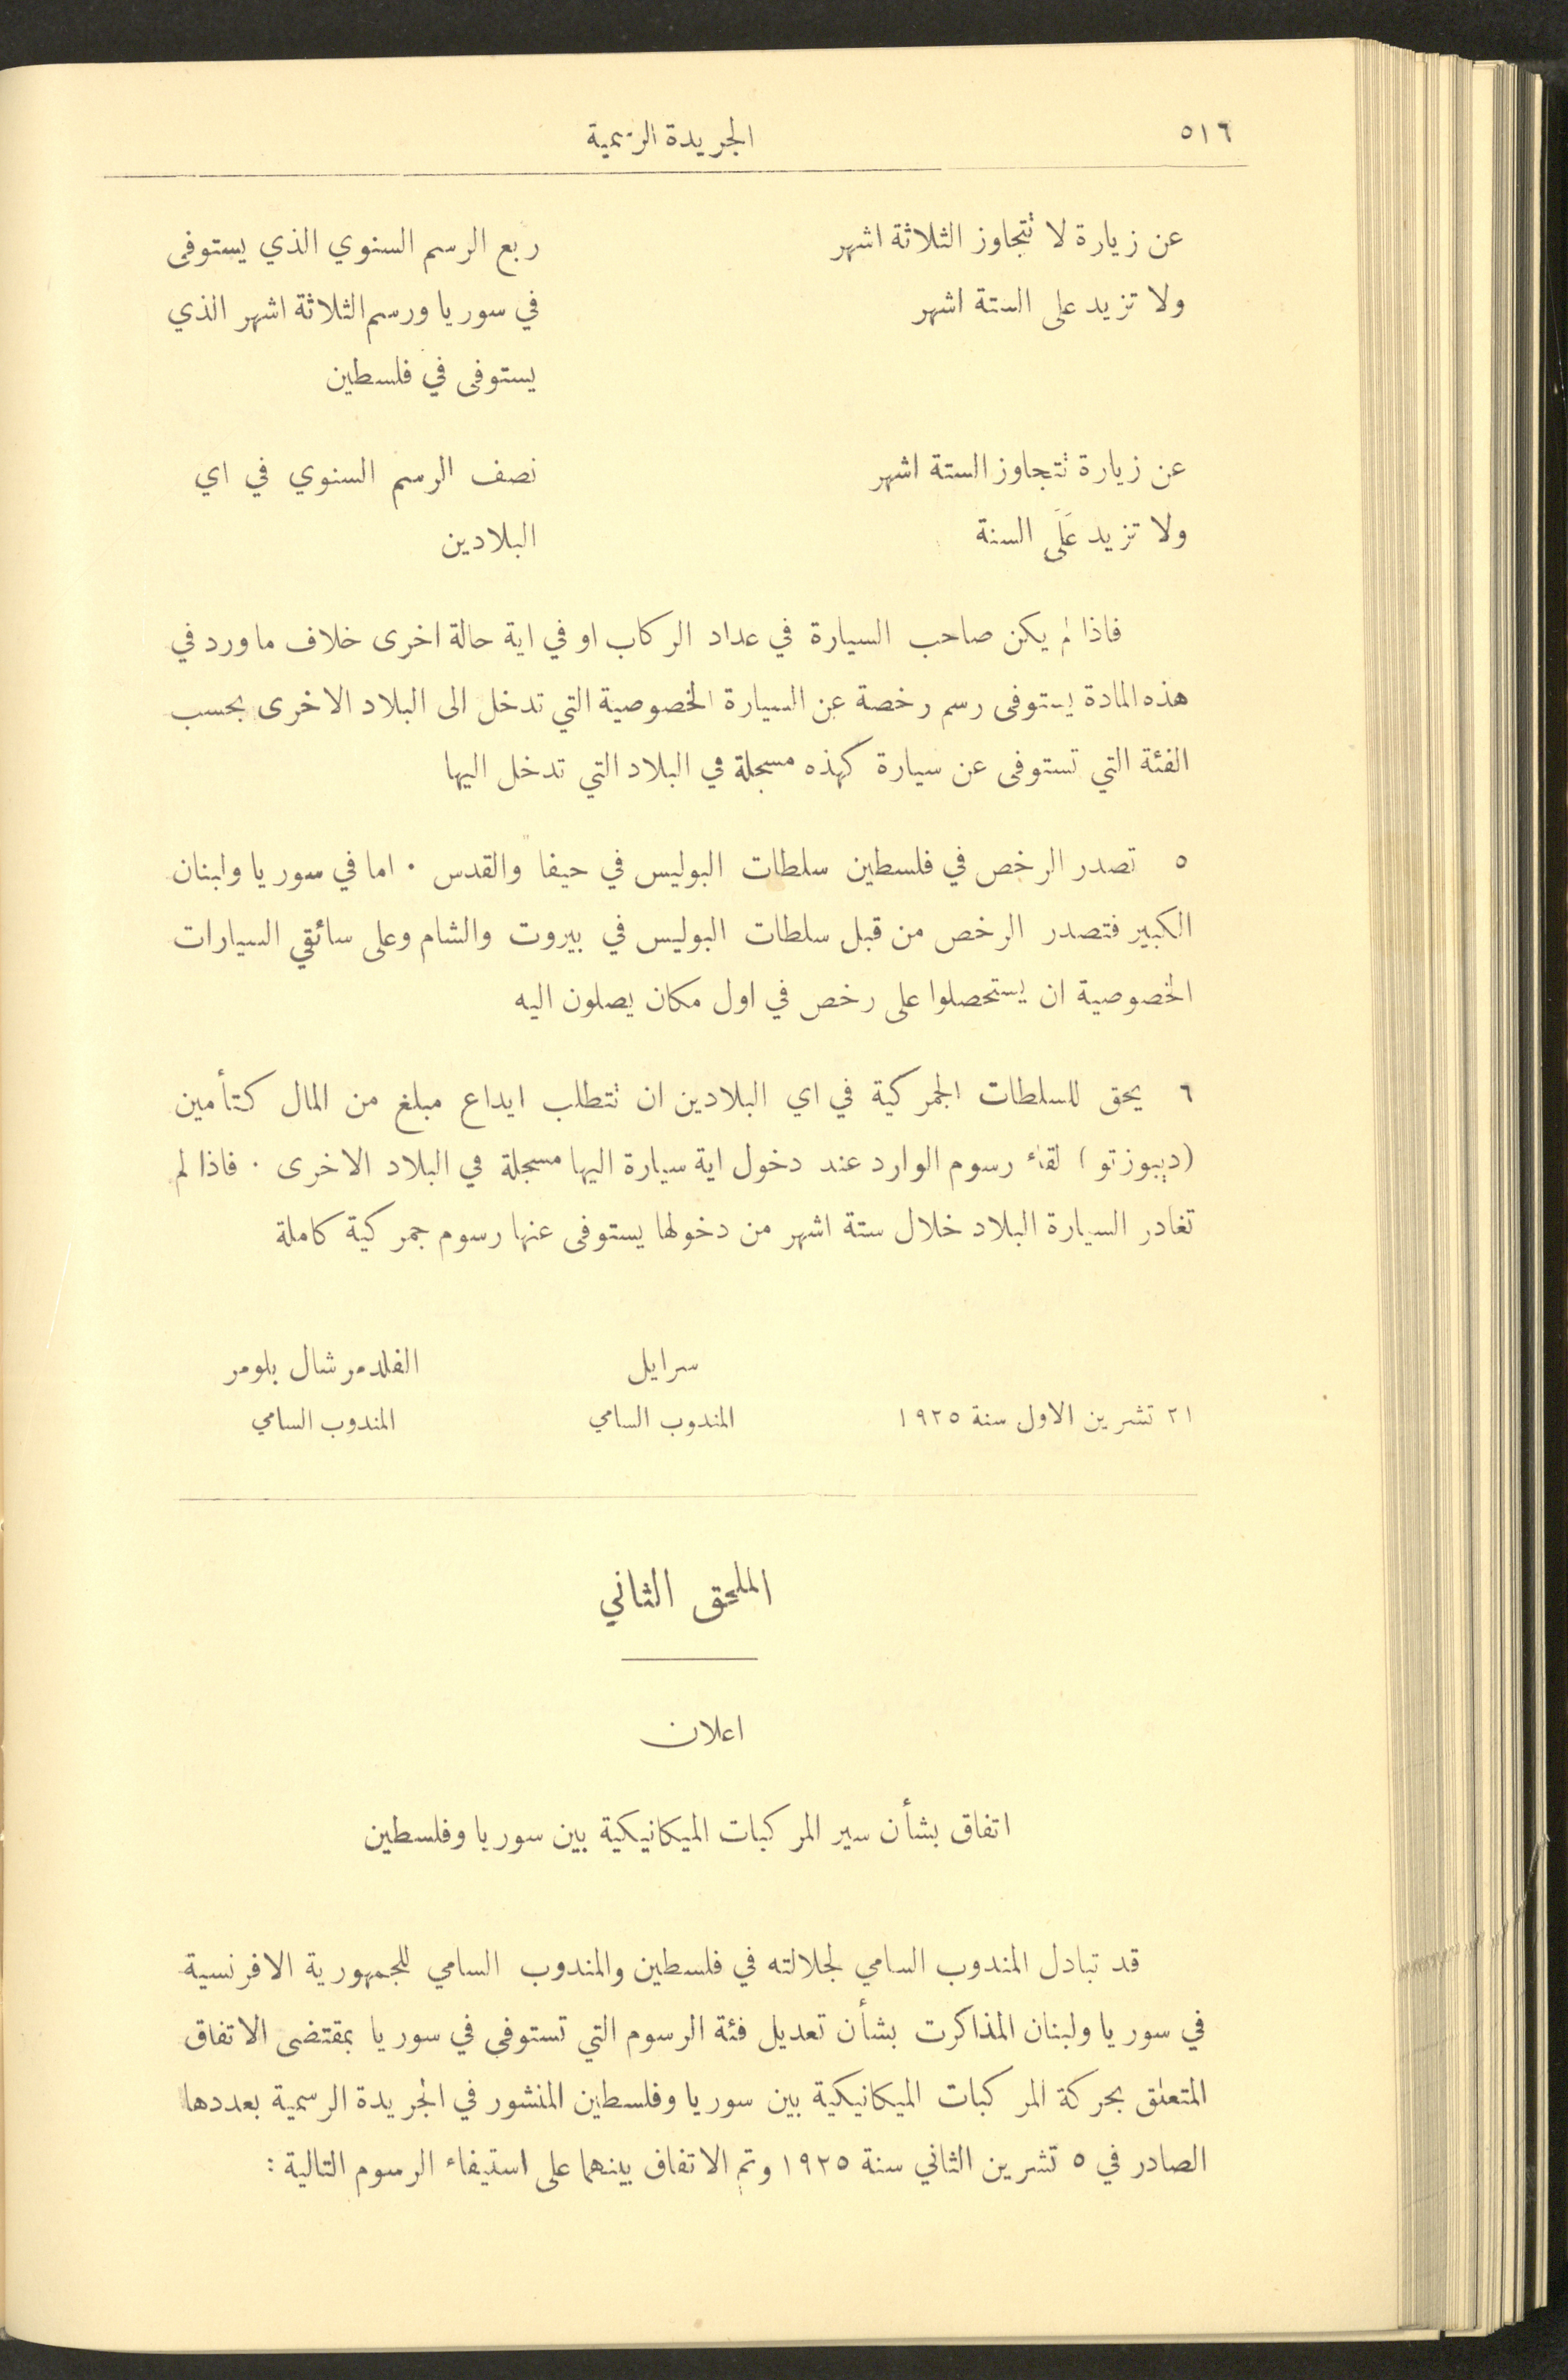 ٥١٦
الجريدة الرسمية
عن زيارة لا تتجاوز الثلاثة اشهر
ولا تزيد على الستة اشهر
ربع الرسم السنوي الذي يستوفى
في سوريا ورسم الثلاثة اشهر الذي
يستوفى في فلسطين
عن زيارة تتجاوز الستة اشهر
ولا تزيد عَلَى السنة
نصف الرسم السنوي في اي
البلادين
فاذا لم يكن صاحب السيارة في عداد الركاب او في اية حالة اخرى خلاف ما ورد في
هذه المادة يستوفى رسم رخصة عن السيارة الخصوصية التي تدخل الى البلاد الاخرى بحسب
الفئة التي تستوفى عن سيارة كهذه مسجلة في البلاد التي تدخل اليها
٥ تصدر الرخص في فلسطين سلطات البوليس في حيفا والقدس . اما في سوريا ولبنان
الكبير فتصدر الرخص من قبل سلطات البوليس في بيروت والشام وعلى سائقي السيارات
الخصوصية ان يستحصلوا على رخص في اول مكان يصلون اليه
٦ يحق للسلطات الجمركية في اي البلادين ان تتطلب ايداع مبلغ من المال كتأمين
(ديبوزتو) لقاء رسوم الوارد عند دخول اية سيارة اليها مسجلة في البلاد الاخرى . فاذا لم
تغادر السيارة البلاد خلال ستة اشهر من دخولها يستوفى عنها رسوم جمركية كاملة
سرايل
الفلدمرشال بلومر
٢١ تشرين الاول سنة ١٩٢٥
المندوب السامي
المندوب السامي
الملحق الثاني
اعلان
اتفاق بشأن سير المركبات الميكانيكية بين سوريا وفلسطين
قد تبادل المندوب السامي لجلالته في فلسطين والمندوب السامي للجمهورية الافرنسية
في سوريا ولبنان المذاكرت بشأن تعديل فئة الرسوم التي تستوفى في سوريا بمقتضى الاتفاق
المتعلق بحركة المركبات الميكانيكية بين سوريا وفلسطين المنشور في الجريدة الرسمية بعددها
الصادر في ٥ تشرين الثاني سنة ١٩٢٥ وتم الاتفاق بينهما على استيفاء الرسوم التالية :